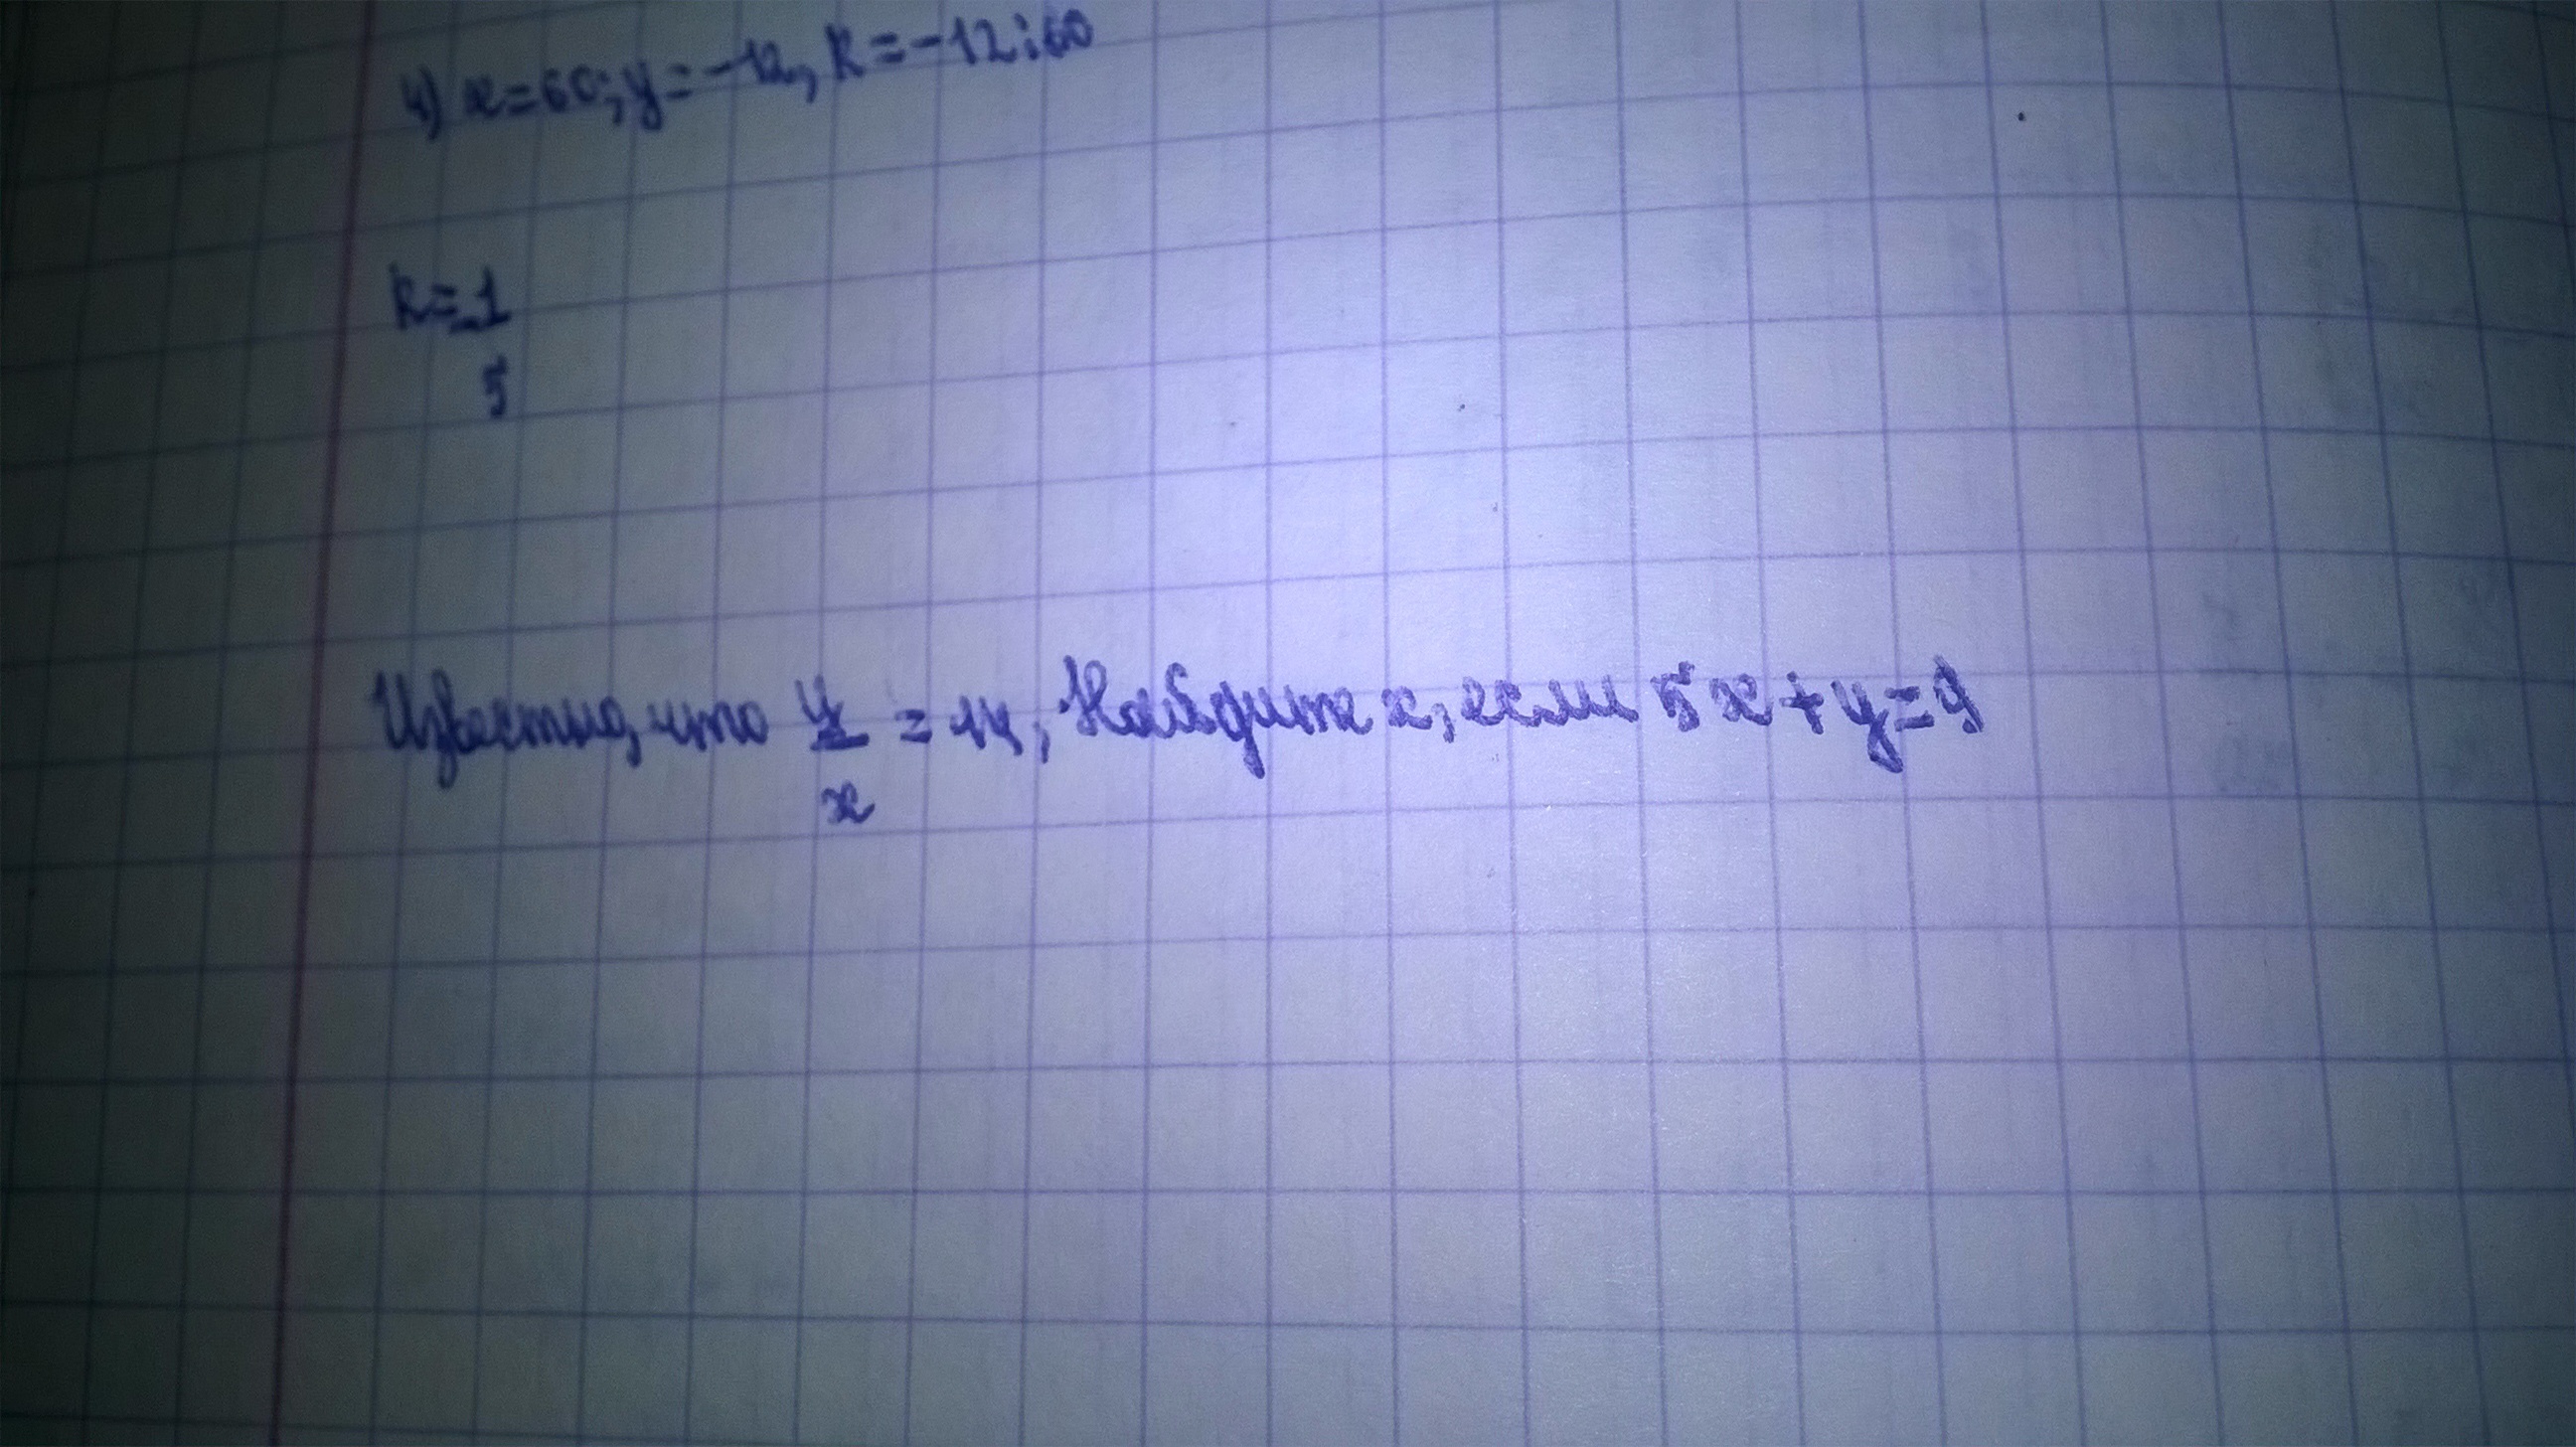 4) x=60; y=-12, k=-12:60
k=-1
5
Известно, что y = 14, Найдите x, если 5x+y=9
x